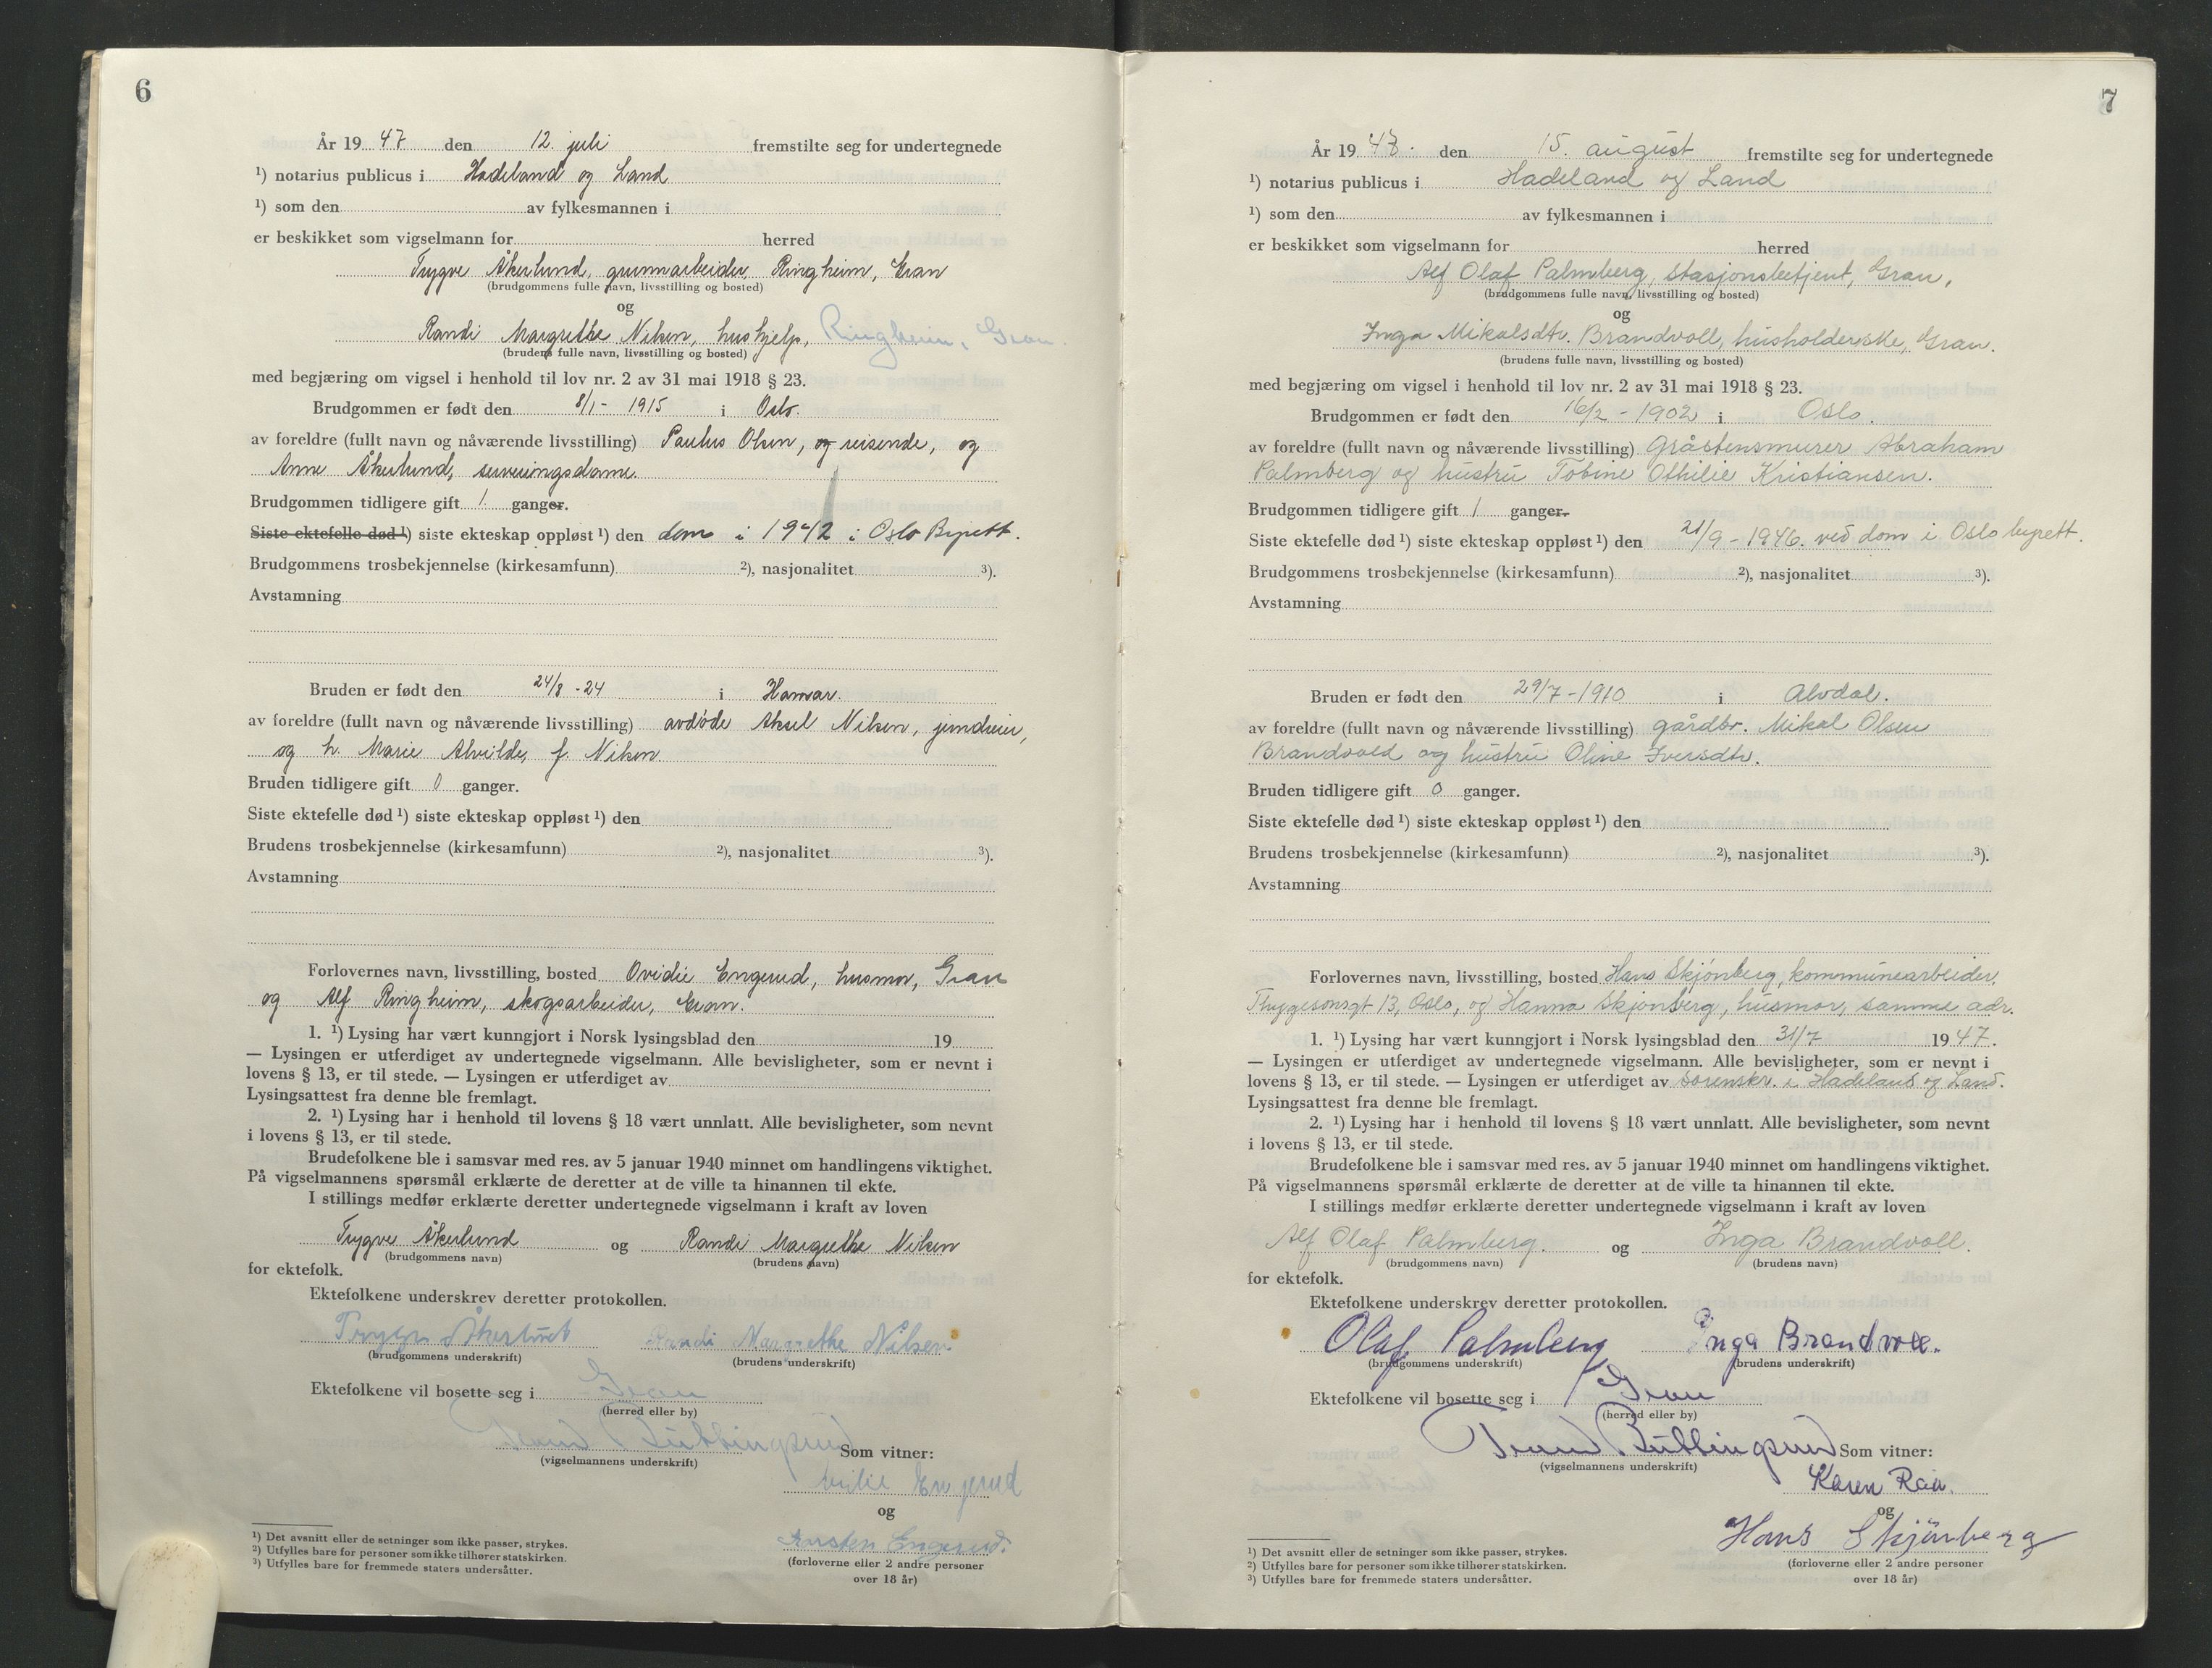 6
År 19 47 den 12. juli fremstilte seg for undertegnede
¹) notarius publicus i Hadeland og Land
¹) som den av fylkesmannen i
er beskikket som vigselmann for herred
Trygve Åkerlund, grunnarbeider, Ringheim, Gran
(brudgommens fulle navn, livsstilling og bosted)
og
Randi Margrethe Nilsen, hushjelp, Ringheim, Gran.
(brudens fulle navn, livsstilling og bosted)
med begjæring om vigsel i henhold til lov nr. 2 av 31 mai 1918 § 23.
Brudgommen er født den 8/1 - 1915 i Oslo.
av foreldre (fullt navn og nåværende livsstilling) Paulus Olsen, og reisende, og
Anne Åkerlund, serveringsdame.
Brudgommen tidligere gift 1 ganger.
Siste ektefelle død ¹) siste ekteskap oppløst ¹) den dom i 1942 i Oslo Byrett.
Brudgommens trosbekjennelse (kirkesamfunn) ²), nasjonalitet ³).
Avstamning
Bruden er født den 24/8 - 24 i Hamar.
av foreldre (fullt navn og nåværende livsstilling) avdøde Aksel Nilsen,
og h. Marie Alvilde, f. Nilsen
Bruden tidligere gift 0 ganger.
Siste ektefelle død ¹) siste ekteskap oppløst ¹) den
Brudens trosbekjennelse (kirkesamfunn) ²), nasjonalitet ³).
Avstamning
Forlovernes navn, livsstilling, bosted Ovidie Engerud, husmor, Gran
og Alf Ringheim, skogsarbeider, Gran.
1. ¹) Lysing har vært kunngjort i Norsk lysingsblad den 19
— Lysingen er utferdiget av undertegnede vigselmann. Alle bevisligheter, som er nevnt i
lovens § 13, er til stede. — Lysingen er utferdiget av
Lysingsattest fra denne ble fremlagt.
2. ¹) Lysing har i henhold til lovens § 18 vært unnlatt. Alle bevisligheter, som nevnt
i lovens § 13, er til stede.
Brudefolkene ble i samsvar med res. av 5 januar 1940 minnet om handlingens viktighet.
På vigselmannens spørsmål erklærte de deretter at de ville ta hinannen til ekte.
I stillings medfør erklærte deretter undertegnede vigselmann i kraft av loven
Trygve Åkerlund og Randi Margrethe Nilsen
(brudgommens navn) (brudens navn)
for ektefolk.
Ektefolkene underskrev deretter protokollen.
Trygve Åkerlund Randi Margrethe Nilsen
(brudgommens underskrift) (brudens underskrift)
Ektefolkene vil bosette seg i Gran
(herred eller by)
Som vitner:
(vigselmannens underskrift)
Engerud
og
Engerud.
(forloverne eller 2 andre personer
over 18 år)
¹) Det avsnitt eller de setninger som ikke passer, strykes.
²) Utfylles bare for personer som ikke tilhører statskirken.
³) Utfylles bare for fremmede staters undersåtter.
7
År 19 47. den 15. august fremstilte seg for undertegnede
¹) notarius publicus i Hadeland og Land
¹) som den av fylkesmannen i
er beskikket som vigselmann for herred
Alf Olaf Palmberg, stasjonsbetjent, Gran,
(brudgommens fulle navn, livsstilling og bosted)
og
Inga Mikalsdtr. Brandvoll, husholderske, Gran.
(brudens fulle navn, livsstilling og bosted)
med begjæring om vigsel i henhold til lov nr. 2 av 31 mai 1918 § 23.
Brudgommen er født den 16/2 - 1902 i Oslo.
av foreldre (fullt navn og nåværende livsstilling) gråstensmurer Abraham
Palmberg og hustru Tobine Othilie Kristiansen.
Brudgommen tidligere gift 1 ganger.
Siste ektefelle død ¹) siste ekteskap oppløst ¹) den 21/9 - 1946. ved dom i Oslo byrett.
Brudgommens trosbekjennelse (kirkesamfunn) ²), nasjonalitet ³).
Avstamning
Bruden er født den 29/7 - 1910 i Alvdal.
av foreldre (fullt navn og nåværende livsstilling) gårdbr. Mikal Olsen
Brandvold og hustru Oline Iversdtr.
Bruden tidligere gift 0 ganger.
Siste ektefelle død ¹) siste ekteskap oppløst ¹) den
Brudens trosbekjennelse (kirkesamfunn) ²), nasjonalitet ³).
Avstamning
Forlovernes navn, livsstilling, bosted Hans Skjønberg, kommunearbeider,
Thygesonsgt 13, Oslo, og Hanna Skjønberg, husmor, samme adr.
1. ¹) Lysing har vært kunngjort i Norsk lysingsblad den 31/7 19 47.
— Lysingen er utferdiget av undertegnede vigselmann. Alle bevisligheter, som er nevnt i
lovens § 13, er til stede. — Lysingen er utferdiget av sorenskr. i Hadeland og Land.
Lysingsattest fra denne ble fremlagt.
2. ¹) Lysing har i henhold til lovens § 18 vært unnlatt. Alle bevisligheter, som nevnt
i lovens § 13, er til stede.
Brudefolkene ble i samsvar med res. av 5 januar 1940 minnet om handlingens viktighet.
På vigselmannens spørsmål erklærte de deretter at de ville ta hinannen til ekte.
I stillings medfør erklærte deretter undertegnede vigselmann i kraft av loven
Alf Olaf Palmberg. og Inga Brandvoll.
(brudgommens navn) (brudens navn)
for ektefolk.
Ektefolkene underskrev deretter protokollen.
Olaf Palmberg Inga Brandvoll.
(brudgommens underskrift) (brudens underskrift)
Ektefolkene vil bosette seg i Gran
(herred eller by)
Som vitner:
(vigselmannens underskrift)
Karen
og
Hans Skjönberg
(forloverne eller 2 andre personer
over 18 år)
¹) Det avsnitt eller de setninger som ikke passer, strykes.
²) Utfylles bare for personer som ikke tilhører statskirken.
³) Utfylles bare for fremmede staters undersåtter.